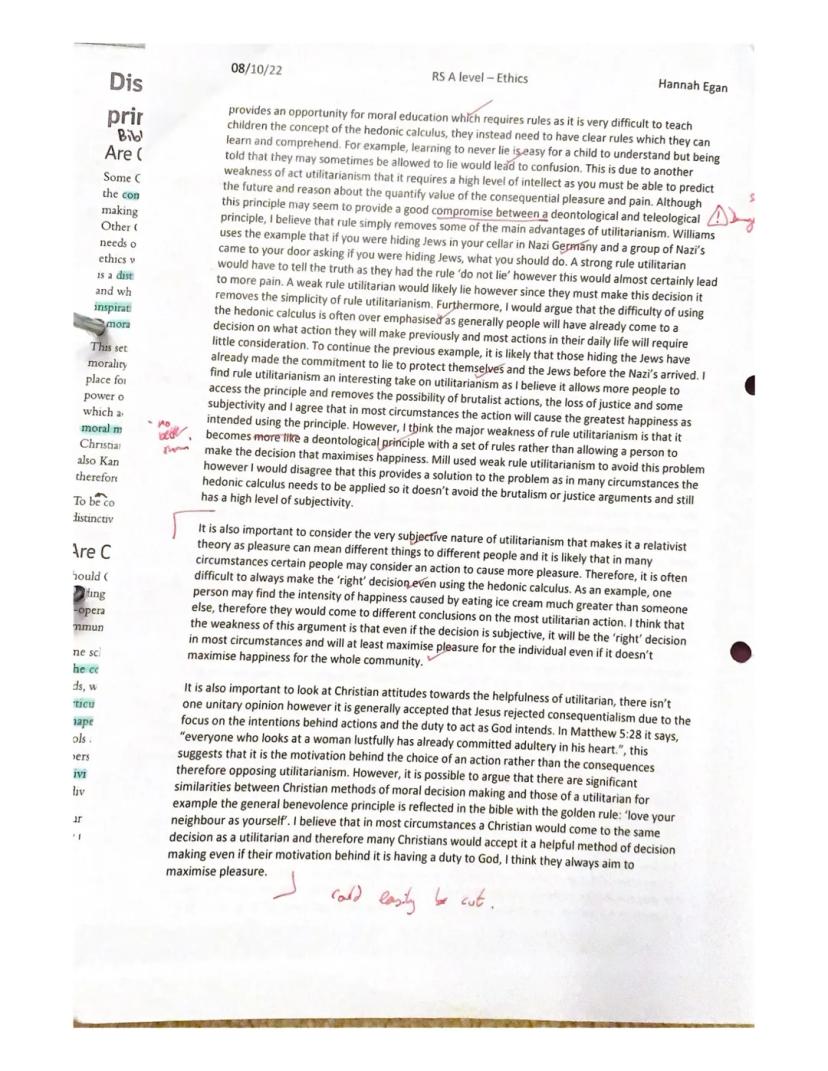 08/10/22
RS A level – Ethics
Hannah Egan
provides an opportunity for moral education which requires rules as it is very difficult to teach
children the concept of the hedonic calculus, they instead need to have clear rules which they can
learn and comprehend. For example, learning to never lie is easy for a child to understand but being
told that they may sometimes be allowed to lie would lead to confusion. This is due to another
weakness of act utilitarianism that it requires a high level of intellect as you must be able to predict
the future and reason about the quantify value of the consequential pleasure and pain. Although
this principle may seem to provide a good compromise between a deontological and teleological
principle, I believe that rule simply removes some of the main advantages of utilitarianism. Williams
uses the example that if you were hiding Jews in your cellar in Nazi Germany and a group of Nazi's
came to your door asking if you were hiding Jews, what you should do. A strong rule utilitarian
would have to tell the truth as they had the rule 'do not lie' however this would almost certainly lead
to more pain. A weak rule utilitarian would likely lie however since they must make this decision it
removes the simplicity of rule utilitarianism. Furthermore, I would argue that the difficulty of using
the hedonic calculus is often over emphasised as generally people will have already come to a
decision on what action they will make previously and most actions in their daily life will require
little consideration. To continue the previous example, it is likely that those hiding the Jews have
already made the commitment to lie to protect themselves and the Jews before the Nazi's arrived. I
find rule utilitarianism an interesting take on utilitarianism as I believe it allows more people to
access the principle and removes the possibility of brutalist actions, the loss of justice and some
subjectivity and I agree that in most circumstances the action will cause the greatest happiness as
intended using the principle. However, I think the major weakness of rule utilitarianism is that it
becomes more like a deontological principle with a set of rules rather than allowing a person to
make the decision that maximises happiness. Mill used weak rule utilitarianism to avoid this problem
however I would disagree that this provides a solution to the problem as in many circumstances the
hedonic calculus needs to be applied so it doesn't avoid the brutalism or justice arguments and still
has a high level of subjectivity.
It is also important to consider the very subjective nature of utilitarianism that makes it a relativist
theory as pleasure can mean different things to different people and it is likely that in many
circumstances certain people may consider an action to cause more pleasure. Therefore, it is often
difficult to always make the 'right' decision even using the hedonic calculus. As an example, one
person may find the intensity of happiness caused by eating ice cream much greater than someone
else, therefore they would come to different conclusions on the most utilitarian action. I think that
the weakness of this argument is that even if the decision is subjective, it will be the 'right' decision
in most circumstances and will at least maximise pleasure for the individual even if it doesn't
maximise happiness for the whole community.
It is also important to look at Christian attitudes towards the helpfulness of utilitarian, there isn't
one unitary opinion however it is generally accepted that Jesus rejected consequentialism due to the
focus on the intentions behind actions and the duty to act as God intends. In Matthew 5:28 it says,
"everyone who looks at a woman lustfully has already committed adultery in his heart.", this
suggests that it is the motivation behind the choice of an action rather than the consequences
therefore opposing utilitarianism. However, it is possible to argue that there are significant
similarities between Christian methods of moral decision making and those of a utilitarian for
example the general benevolence principle is reflected in the bible with the golden rule: 'love your
neighbour as yourself'. I believe that in most circumstances a Christian would come to the same
decision as a utilitarian and therefore many Christians would accept it a helpful method of decision
making even if their motivation behind it is having a duty to God, I think they always aim to
maximise pleasure.
could easily be cut.
Dis
prin
Are C
Some C
the con
making
Other
needs o
ethics
is a dist
and wh
inspirat
mora
This set
morality
place for
power o
which a
moral m
Christia
also Kan
therefore
To be co
distinctiv
Are C